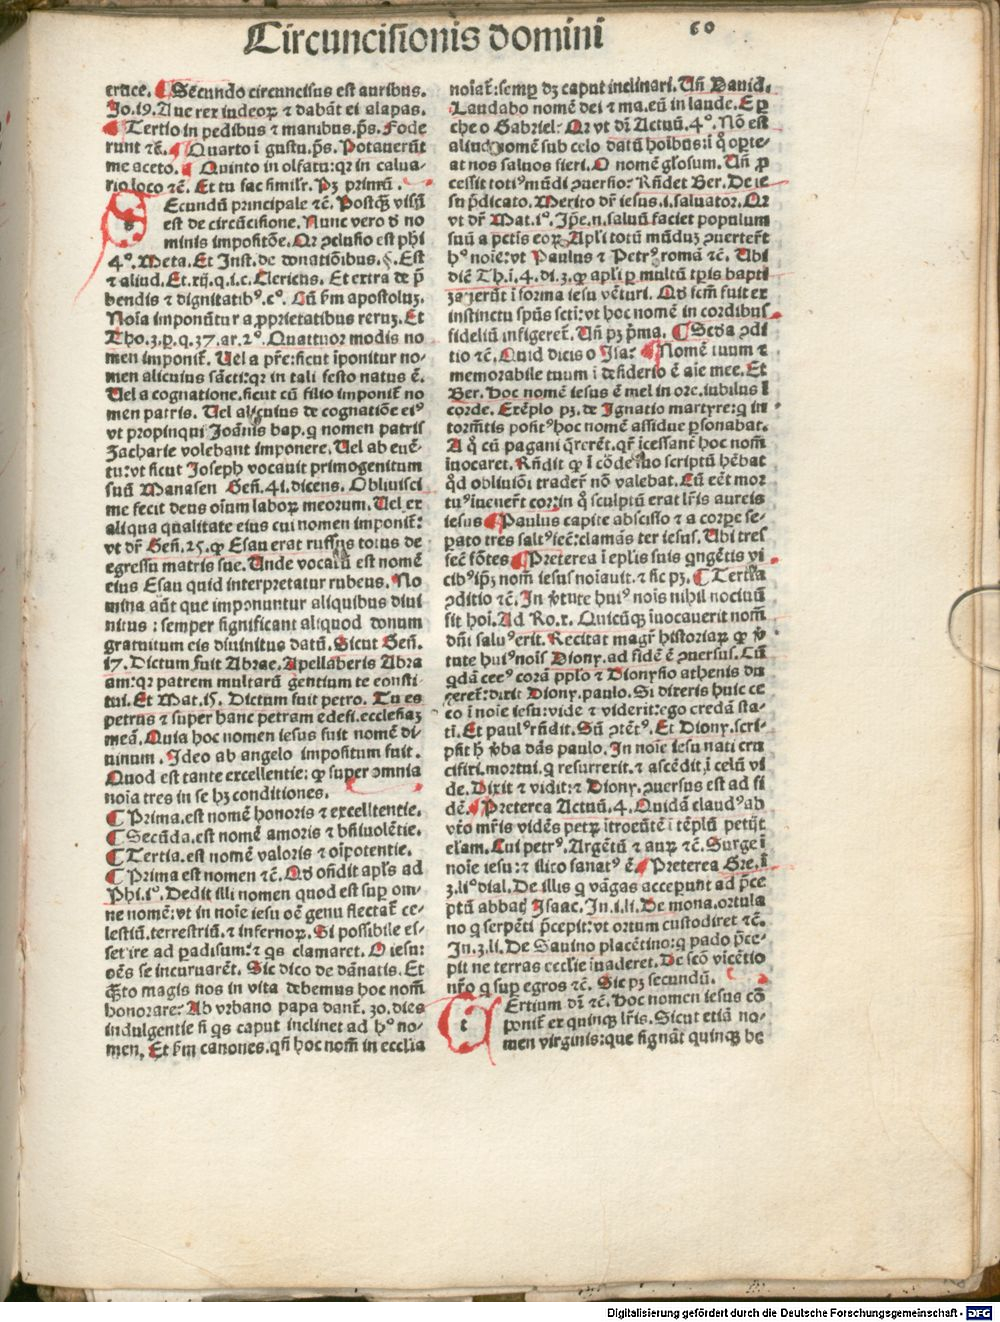 Circuncisionis domini
60
cruce. ¶ Secundo circuncisus est auribus.
Jo.19. Aue rex iudeoꝝ ⁊ dabāt ei alapas.
¶ Tertio in pedibus ⁊ manibus. p̄s. Fode
runt ⁊c̄. ¶ Quarto ī gustu. p̄s. Potauerūt
me aceto. ¶ Quinto in olfatu: qꝛ in calua-
rio loco ⁊c̄. Et tu fac simiľr. Pꝫ primū.
SEcundū principale ⁊c̄. Postq̄ꝫ visū
est de circūcisione. Nunc vero d̄ no
minis impositōe. Qꝛ ꝯclusio est phi
4°. Meta. Et Inst. de donationibus. §. Est
⁊ aliud. Et. xij. q. i. c. Clericus. Et extra de p̄
bendis ⁊ dignitatibꝰ. c°. Cū ẜm apostoluꝫ.
Noīa imponūtur a ꝓprietatibus reruꝫ. Et
Tho. 3. p. q. 37. ar. 2°. Quattuor modis no
men imponit̄. Uel a pr̄e: sicut īponitur no-
men alicuius sācti: qꝛ in tali festo natus ē.
Uel a cognatione. sicut cū filio imponit̄ no
men patris. Uel alicuius de cognatiōe eiꝰ
vt propinqui Joānis bap. q̄ nomen patris
Zacharie volebant imponere. Uel ab euē-
tu: vt sicut Joseph vocauit primogenitum
suū Manasen Geń. 41. dicens. Obliuisci
me fecit deus oīum laboꝝ meorum. Uel ex
aliqua qualitate eius cui nomen imponit̄:
vt dr̄ Geń. 25. ꝙ Esau erat ruffus totus de
egressu matris sue. Unde vocatū est nomē
eius Esau quid interpretatur rubeus. No
mina aūt que imponuntur aliquibus diui
nitus: semper significant aliquod donum
gratuitum eis diuinitus datū. Sicut Geń.
17. Dictum fuit Abrae. Apellaberis Abra
am: qꝛ patrem multarū gentium te consti-
tui. Et Mat. 15. Dictum fuit petro. Tu es
petrus ⁊ super hanc petram edefi. ecclesiaꝫ
meā. Quia hoc nomen iesus fuit nomē di-
uinum. Ideo ab angelo impositum fuit.
Quod est tante excellentie: ꝙ super omnia
noīa tres in se hꝫ conditiones.
¶ Prima. est nomē honoris ⁊ excellentie.
¶ Secūda. est nomē amoris ⁊ bn̄iuolētie.
¶ Tertia. est nomē valoris ⁊ oīpotentie.
¶ Prima est nomen ⁊c̄. Qd̄ on̄dit apľs ad
Phi. i°. Dedit illi nomen quod est suꝑ om-
ne nomē: vt in noīe iesu oē genu flectat̄ ce-
lestiū. terrestriū. ⁊ infernoꝝ. Si possibile es-
set ire ad padisum: ⁊ q̄s clamaret. O iesu:
oēs se incuruarēt. Sic dico de dānatis. Et
q̄ꝫto magis nos in vita debemus hoc nom̄
honorare? Ab vrbano papa dant̄. 30. dies
indulgentie si q̄s caput inclinet ad hꝰ no-
men. Et ẜm canones. qn̄ hoc nom̄ in ecclīa
noīat̄: semꝑ dꝫ caput inclinari. Un̄ Dauid.
Laudabo nomē dei ⁊ ma. eū in laude. E ꝑ
che o Gabriel? Qꝛ vt dī Actuū. 4°. Nō est
aliud nomē sub celo datū hoībus: ī q̊ oꝑte-
at nos saluos fieri. O nomē gľosum. Un̄ ꝓ
cessit totiꝰ mūdi ꝯuersio? Rn̄det Ber. De ie
su p̄dicato. Merito dr̄ iesus. i. saluator. Qꝛ
vt dr̄ Mat. i°. Ip̄e. n. saluū faciet populum
suū a pctis eoꝝ. Apľi totū mūduꝫ ꝯuertert̄
hꝰ noīe: vt Paulus ⁊ Petrꝰ romā ⁊c̄. Ubi
diē Th. ī. 4. di. 3. ꝙ apľi ꝑ multū tꝑis bapti
zauerūt ī forma iesu vēturi. Qd̄ fcm̄ fuit ex
instinctu spūs scti: vt hoc nomē in cordibus
fideliū infigeret. Un̄ pꝫ p̄ma. ¶ Secda ꝯdi
tio ⁊c̄. Quid dicis o Isa? ¶ Nomē tuum ⁊
memorabile tuum ī desiderio ē aīe mee. Et
Ber. Hoc nomē iesus ē mel in ore. iubilus ī
corde. Exēplo pꝫ. de Ignatio martyre: q̇ in
tormētis positꝰ hoc nomē assidue ꝑsonabat.
A q̊ cū pagani q̄rerēt. qr̄ īcessant̄ hoc nom̄
īuocaret. Rn̄dit ꝙ ī cōde suo scriptū hēbat
q̊d obliuioī trader̄ nō valebat. Cū eēt mor
tuꝰ īuener̄t cor: in q̊ sculptū erat lr̄is aureis
iesus ¶ Paulus capite absciso ⁊ a corꝑe se-
ꝑato tres saltꝰ fecē: clamās ter iesus. Ubi tres
fecē fōtes ¶ Preterea ī epľis suis q̄ngētis vi
cibꝰ ip̄ꝫ nom̄ iesus noīauit. ⁊ sic pꝫ. ¶ Tertia
ꝯditio ⁊c̄. In v̓tute huiꝰ noīs nihil nociuū
fit hoī. Ad Ro. x. Quicūqꝫ īuocauerit nom̄
dn̄i saluꝰ erit. Recitat magr̄ historiaꝝ ꝙ v̓
tute huiꝰ noīs Diony. ad fidē ē ꝯuersus. Cū
q̄dā cecꝰ corā pplo ⁊ Dionysio athenis du
ceret̄: dixit Diony. paulo. Si dixeris huic ce
co ī noīe iesu: vide ⁊ viderit: ego credā sta-
tī. Et pauľ rn̄dit. Sū ꝯtētꝰ. Et Diony. scri-
psit h̄ v̓ba dās paulo. In noīe iesu nati cru
cifixi. mortui. q̇ resurrexit. ⁊ ascēdit ī celū vi
de. Dixit ⁊ vidit: ⁊ Diony. ꝯuersus est ad fi
dē. ¶ Preterea Actuū. 4. Quidā claudꝰ ab
vt̄o mr̄is vidēs petꝝ ītroeūtē ī tēplū petijt
eľam. Cui petrꝰ. Argētū ⁊ auꝝ ⁊c̄. Surge ī
noīe iesu: ⁊ illico sanatꝰ ē. ¶ Preterea Gre. ī
3. li° dial. De illis q̇ vāgas acceꝑunt ad p̄ce
ptū abbatis Isaac. In. i. li. De mona. ortula
no q̇ serpēti p̄cepit: vt ortum custodiret ⁊c̄.
In. 3. li. De Sauino placētino: q̇ pado p̄ce-
pit ne terras ecclīe īuaderet. De scō vicētio
nr̄o q̇ suꝑ egros ⁊c̄. Sic pꝫ secundū.
tErtium dī ⁊c̄. Hoc nomen iesus cō
ponit̄ ex quinqꝫ lr̄is. Sicut etiā no-
men virginis: que signāt quinqꝫ be
Digitalisierung gefördert durch die Deutsche Forschungsgemeinschaft - DFG